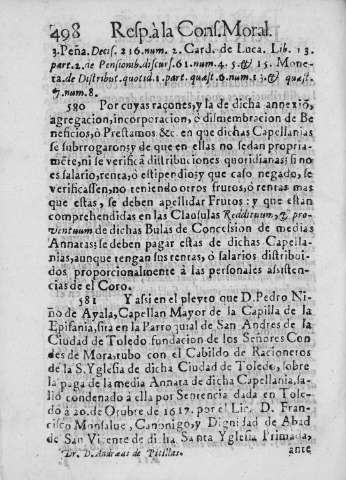 498 Resp. à la Cons. Moral.
3. Peña. Decis. 216. num. 2. Card. de Luca. Lib. 13.
part. 2. de Pensionib. discurs. 61. num. 4. 5. & 15. Mone-
ta. de Distribut. quotid. 1. part. quæst. 6. num. 13. & quæst.
7. num. 8.
580 Por cuyas raçones, y la de dicha annexiõ,
agregacion, incorporacion, ò dismembracion de
Beneficios, ò Prestamos &c. en que dichas Capellanias
se subrrogaron; y de que en ellas no se dan propria-
mẽte, ni se verificã distribuciones quotidianas; si no
es salario, renta, ò estipendio; y que caso negado, se
verificassen, no teniendo otros frutos, ò rentas mas
que estas, se deben apellidar Frutos: y que estàn
comprehendidas en las Clausulas Reddituum, & pro-
ventuum de dichas Bulas de Concession de medias
Annatas; se deben pagar estas de dichas Capella-
nias, aunque tengan sus rentas, ò salarios distribui-
dos proporcionalmente à las personales assisten-
cias de el Coro.
581 Y assi en el pleyto que D. Pedro Ni-
ño de Ayala, Capellan Mayor de la Capilla de la
Epifania, sita en la Parroquial de San Andres de la
Ciudad de Toledo fundacion de los Señores Con-
des de Mora, tubo con el Cabildo de Racioneros
de la S. Yglesia de dicha Ciudad de Toledo, sobre
la paga de la media Annata de dicha Capellania, sa-
liò condenado à ella por Sentencia dada en Tole-
do à 20. de Octubre de 1617. por el Lic. D. Fran-
cisco Monsalue, Canonigo, y Dignidad de Abad
de San Vicente de dicha Santa Yglesia Primada,
Dr. D. Andreas de Pitillas. ante